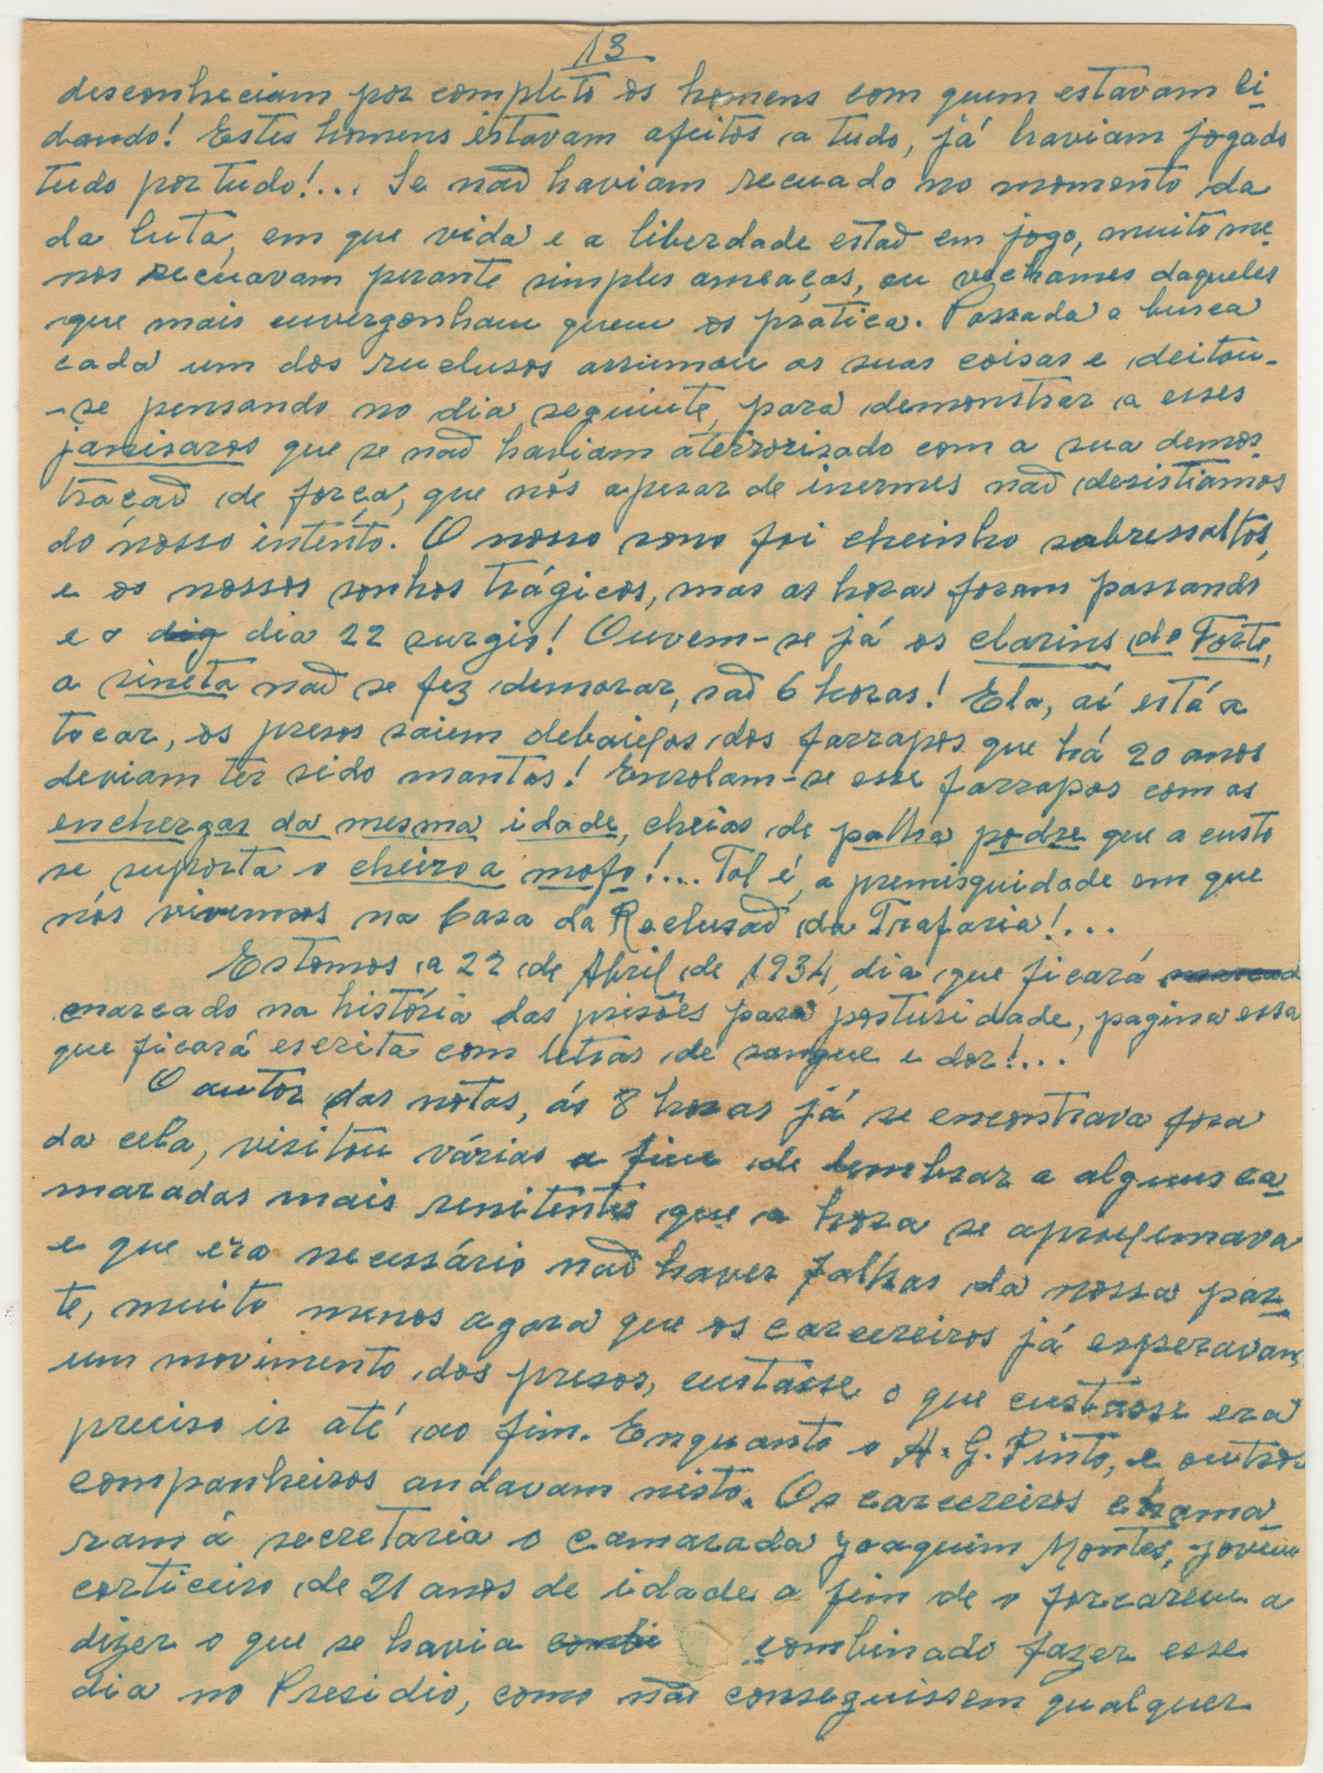 13
desconheciam por completo os homens com quem estavam li
dando! Estes homens estavam afeitos a tudo, já haviam jogado
tudo por tudo!... Se naõ haviam recuado no momento da
da luta, em que vida e a liberdade estaõ em jogo, muito me
nos recuavam perante simples ameaças, ou vechames daqueles
que mais envergonham quem os pratica. Passada a busca
cada um dos reclusos arrumou as suas coisas e deitou-
-se pensando no dia seguinte, para demonstrar a esses
janisaros que se naõ haviam aterrorizado com a sua demos
traçaõ de força, que nós apezar de inermes naõ desistiamos
do nosso intento. O nosso sono foi cheinho sobressaltos,
e os nossos sonhos trágicos, mas as horas foram passando
e o dig dia 22 surgio! Ouvem-se já os clarins do Forte,
a sineta naõ se fez demorar, saõ 6 horas! Ela, aí está a
tocar, os presos saiem debaixos dos farrapos que há 20 anos
deviam ter sido mantas! Enrolam-se esse farrapos com as
enchergas da mesma idade, cheias de palha podre que a custo
se suporta o cheiro a mofo!... Tal é a premisguidade em que
nós vivemos na Casa da Reclusaõ da Trafaria!...
Estamos a 22 de Abril de 1934, dia que ficará marcad
marcado na história das prisões para posturidade, pagina essa
que ficará escrita com letras de sangue e dor!...
O autor das notas, ás 8 horas já se encontrava fora
da cela, visitou várias a fim de lembrar a alguns ca
maradas mais renitentes que a hora se aproximava
e que era necessário naõ haver falhas da nossa par
te, muito menos agora que os carcereiros já esperavam
um movimento dos presos, custasse o que custasse era
preciso ir até ao fim. Enquanto o A. G. Pinto, e outros
companheiros andavam nisto. Os carcereiros chama
ram á secretaria o camarada Joaquim Montes, jovem
corticeiro de 21 anos de idade a fim de o forçarem a
dizer o que se havia combi combinado fazer esse
dia no Presidio, como naõ conseguissem qualquer